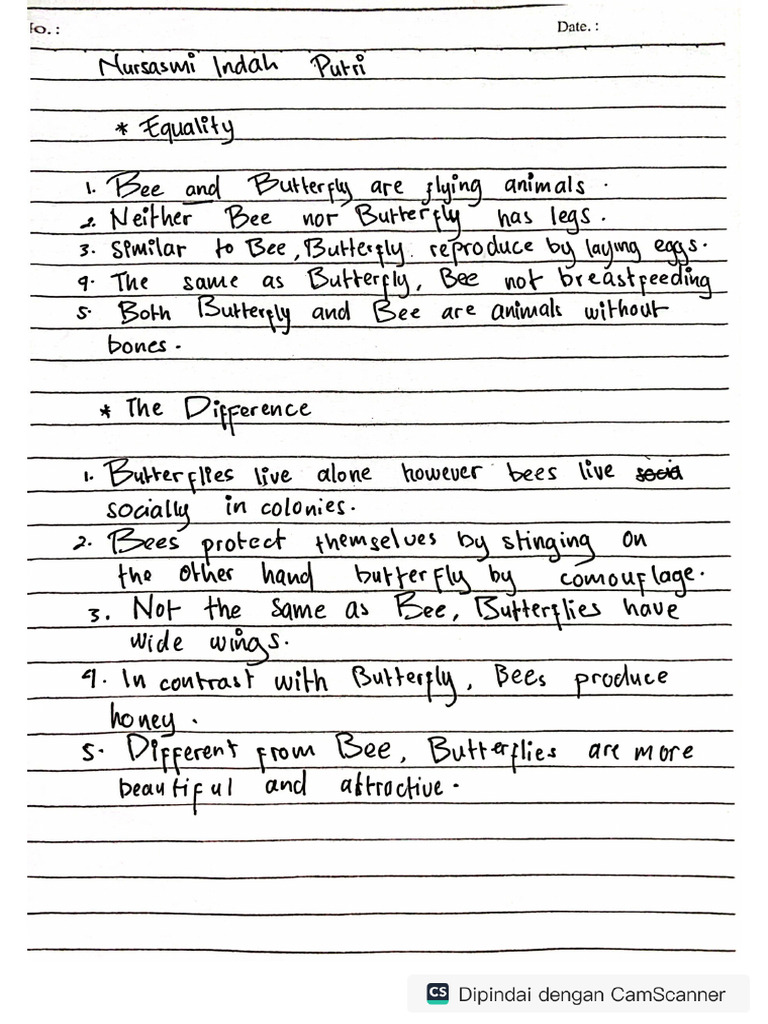 No.:
Date. :
Nursasmi Indah Putri
* Equality
1. Bee and Butterfly are flying animals.
2. Neither Bee nor Butterfly has legs.
3. Similar to Bee, Butterfly reproduce by laying eggs.
4. The same as Butterfly, Bee not breastfeeding
5. Both Butterfly and Bee are animals without
bones.
* The Difference
1. Butterflies live alone however bees live socia
socially in colonies.
2. Bees protect themselves by stinging on
the other hand butterfly by comouflage.
3. Not the same as Bee, Butterflies have
wide wings.
4. In contrast with Butterfly, Bees produce
honey.
5. Different from Bee, Butterflies are more
beautiful and attractive.
CS Dipindai dengan CamScanner